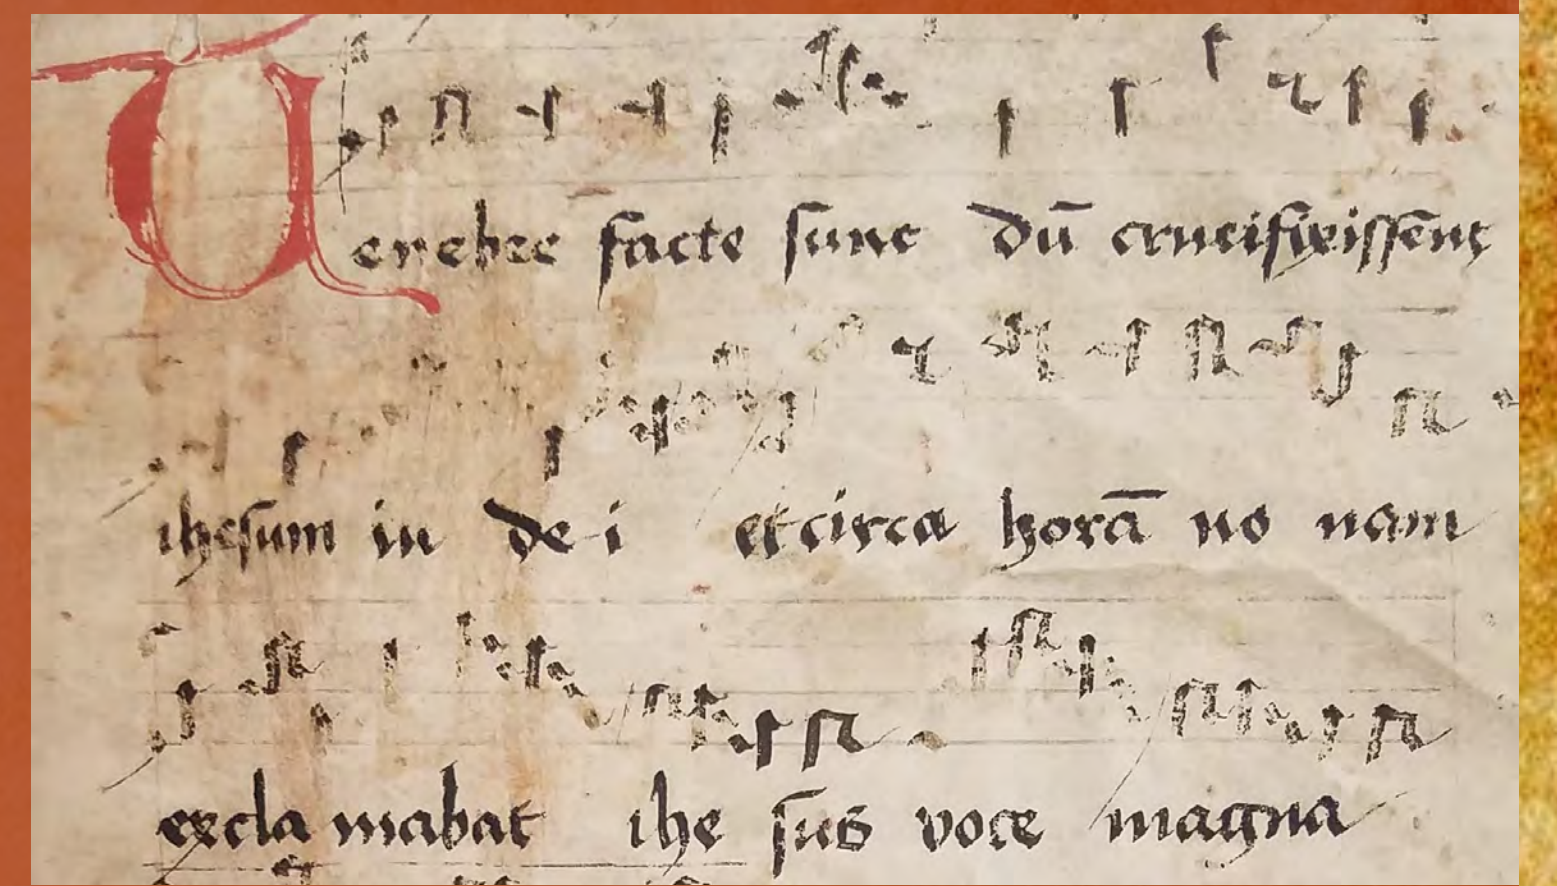 Tenebre facte sunt dū crucifixissēnt
ihesum in de i et circa horā no nam
excla mabat ihe sus voce magna